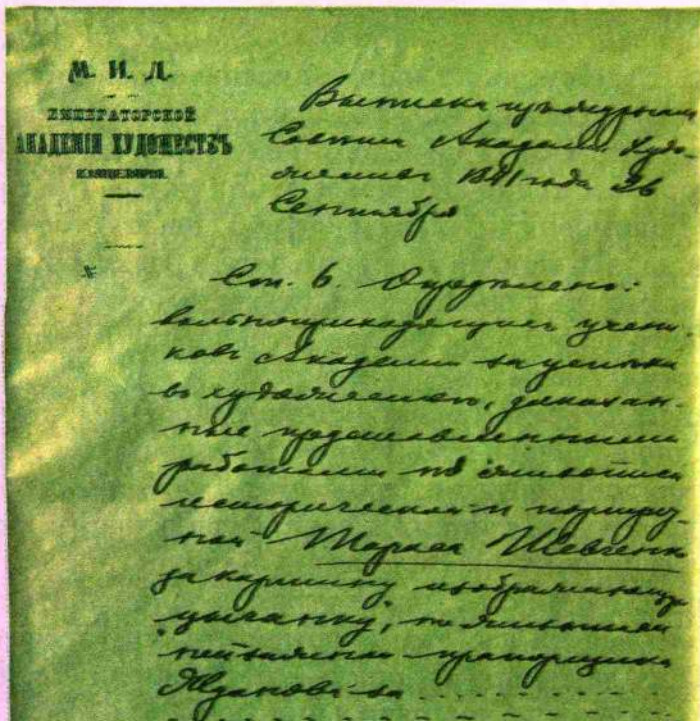 М. И. Д.
ИМПЕРАТОРСКОЙ
АКАДЕМІИ ХУДОЖЕСТВЪ
КАНЦЕЛЯРІЯ.
Выписка изъ журнала
Совѣта Академіи Худо-
жествъ 1841 года 26
Сентября
Ст. 6. Опредѣлено:
вольноприходящихъ учени-
ковъ Академіи за успѣхи
въ художествѣ, доказан-
ные представленными
работами по живописи
исторической и портрет-
ной Тараса Шевченко
за картину изображающую
цыганку, по живописи
пейзажной прапорщика
Жданова за